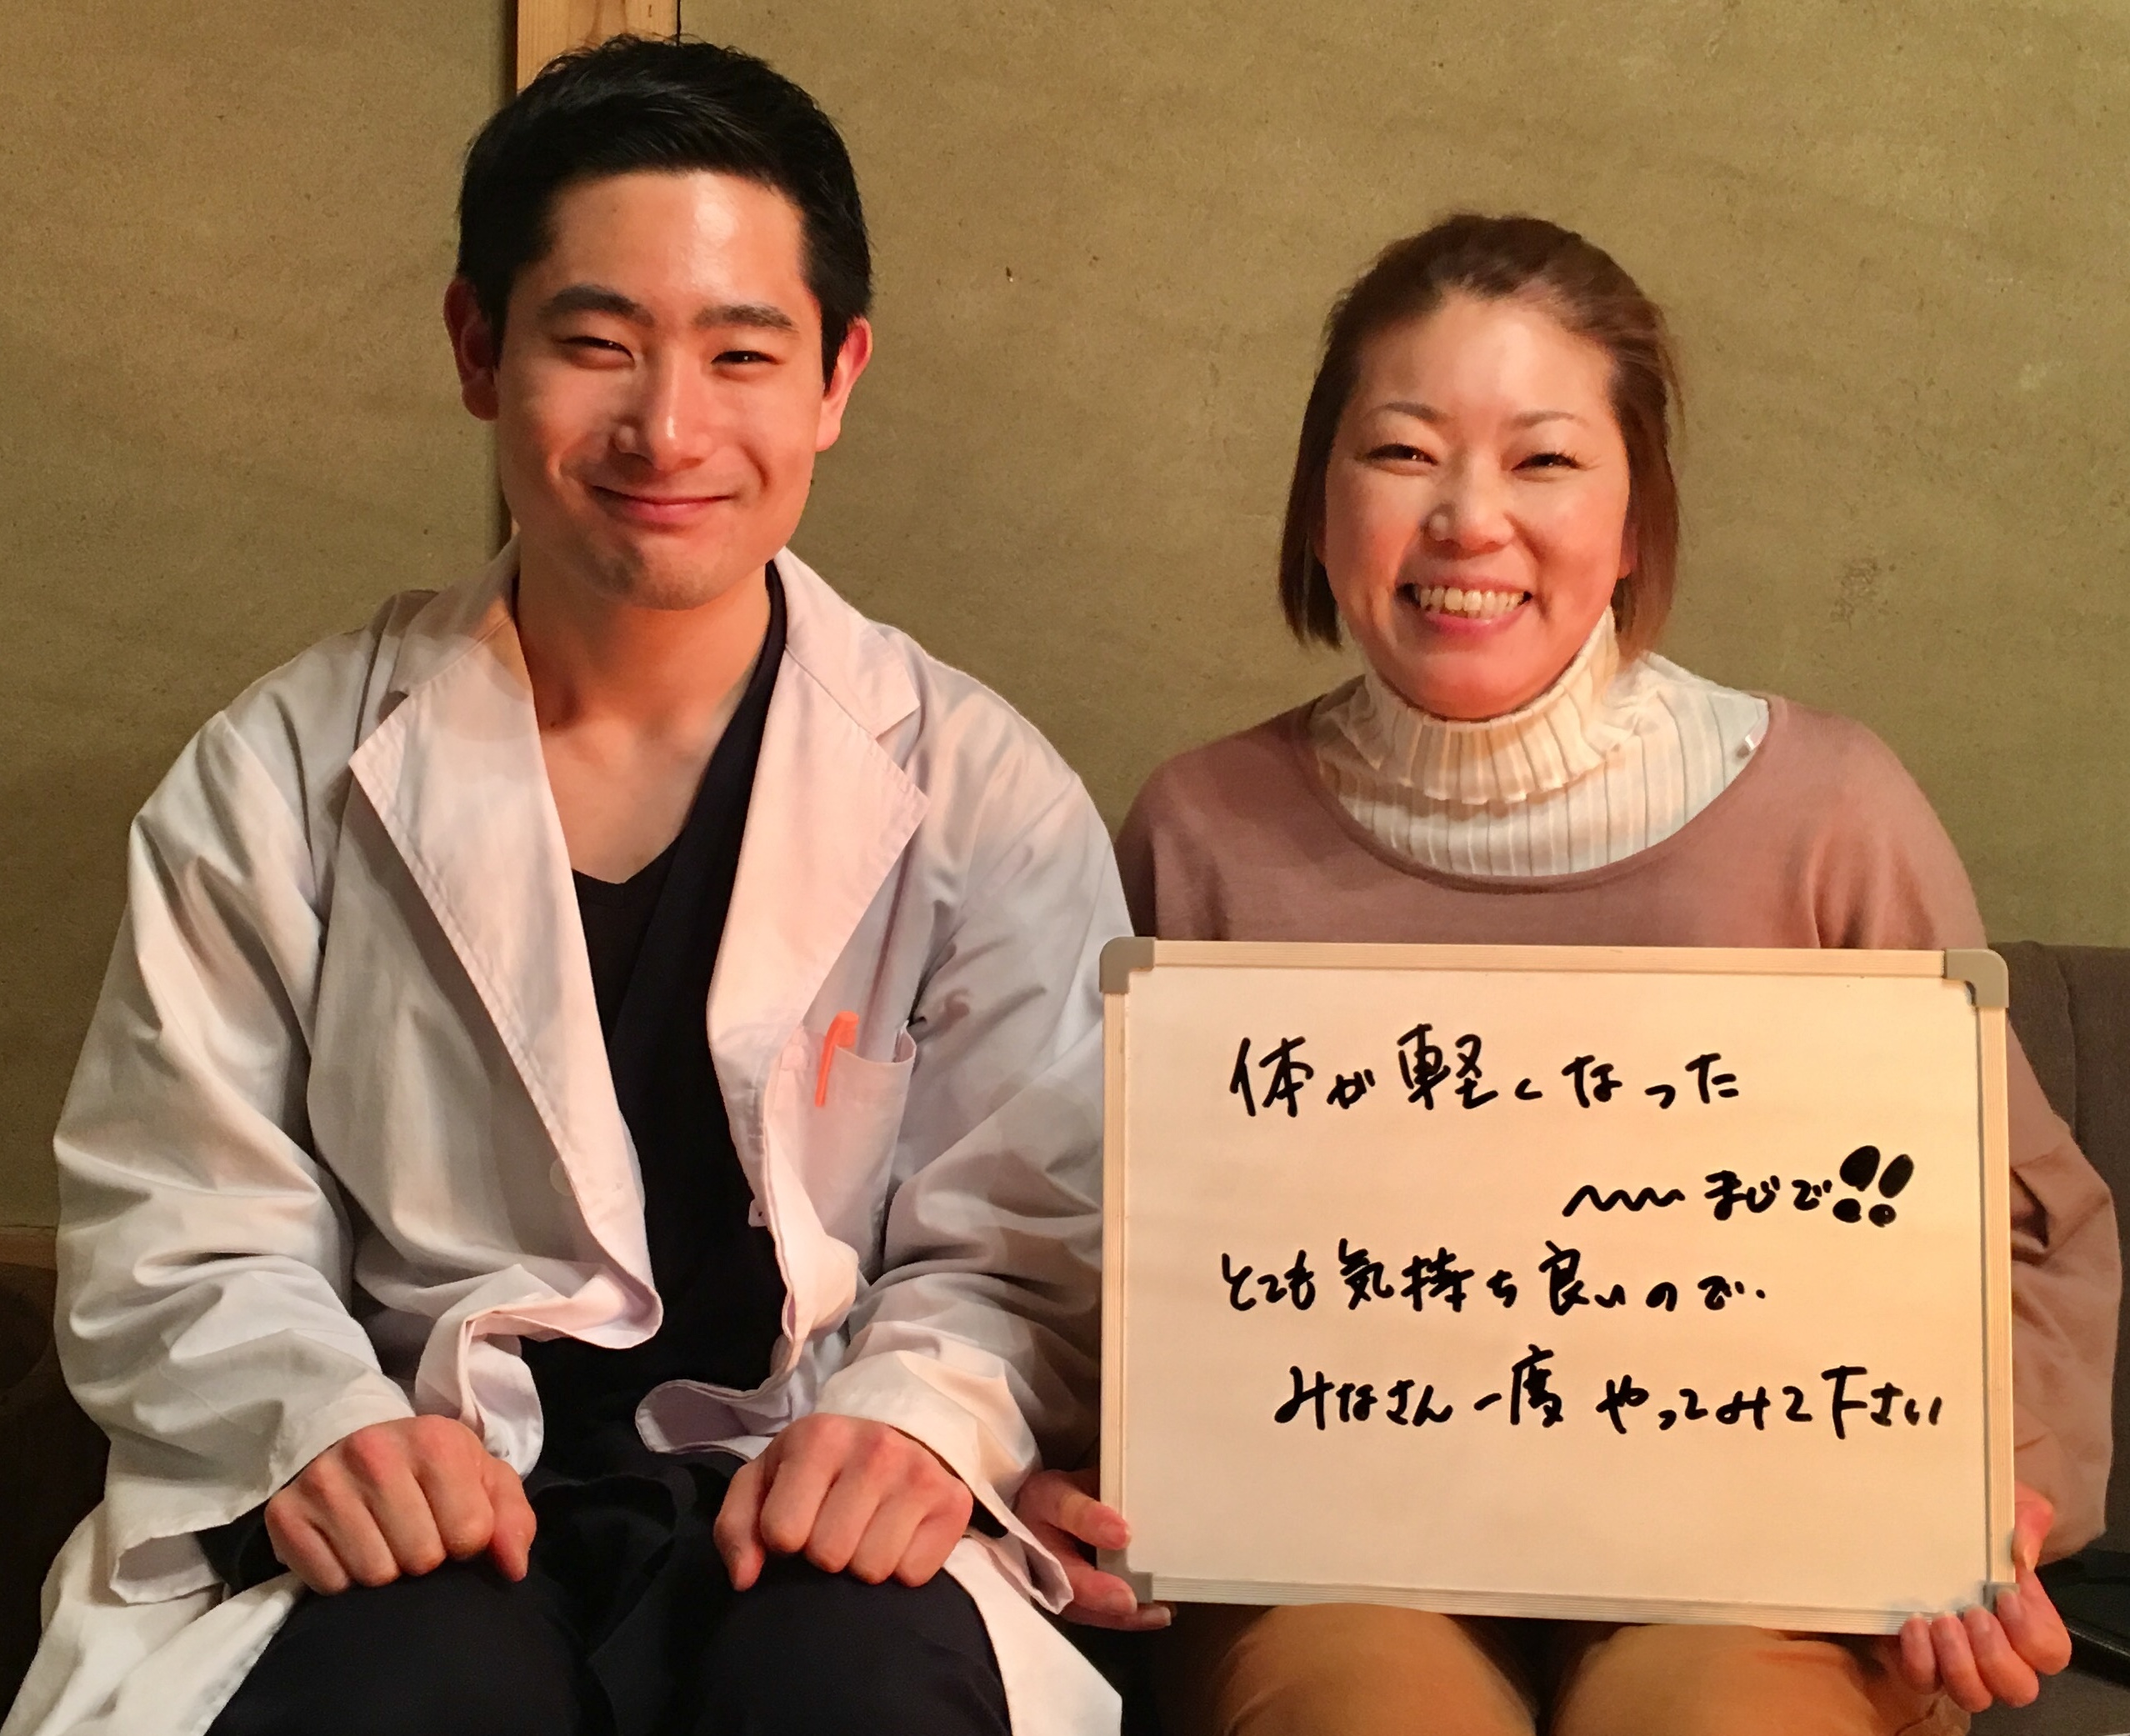 体が軽くなった
〜〜まじで!!
とても気持ち良いので、
みなさん一度やってみて下さい